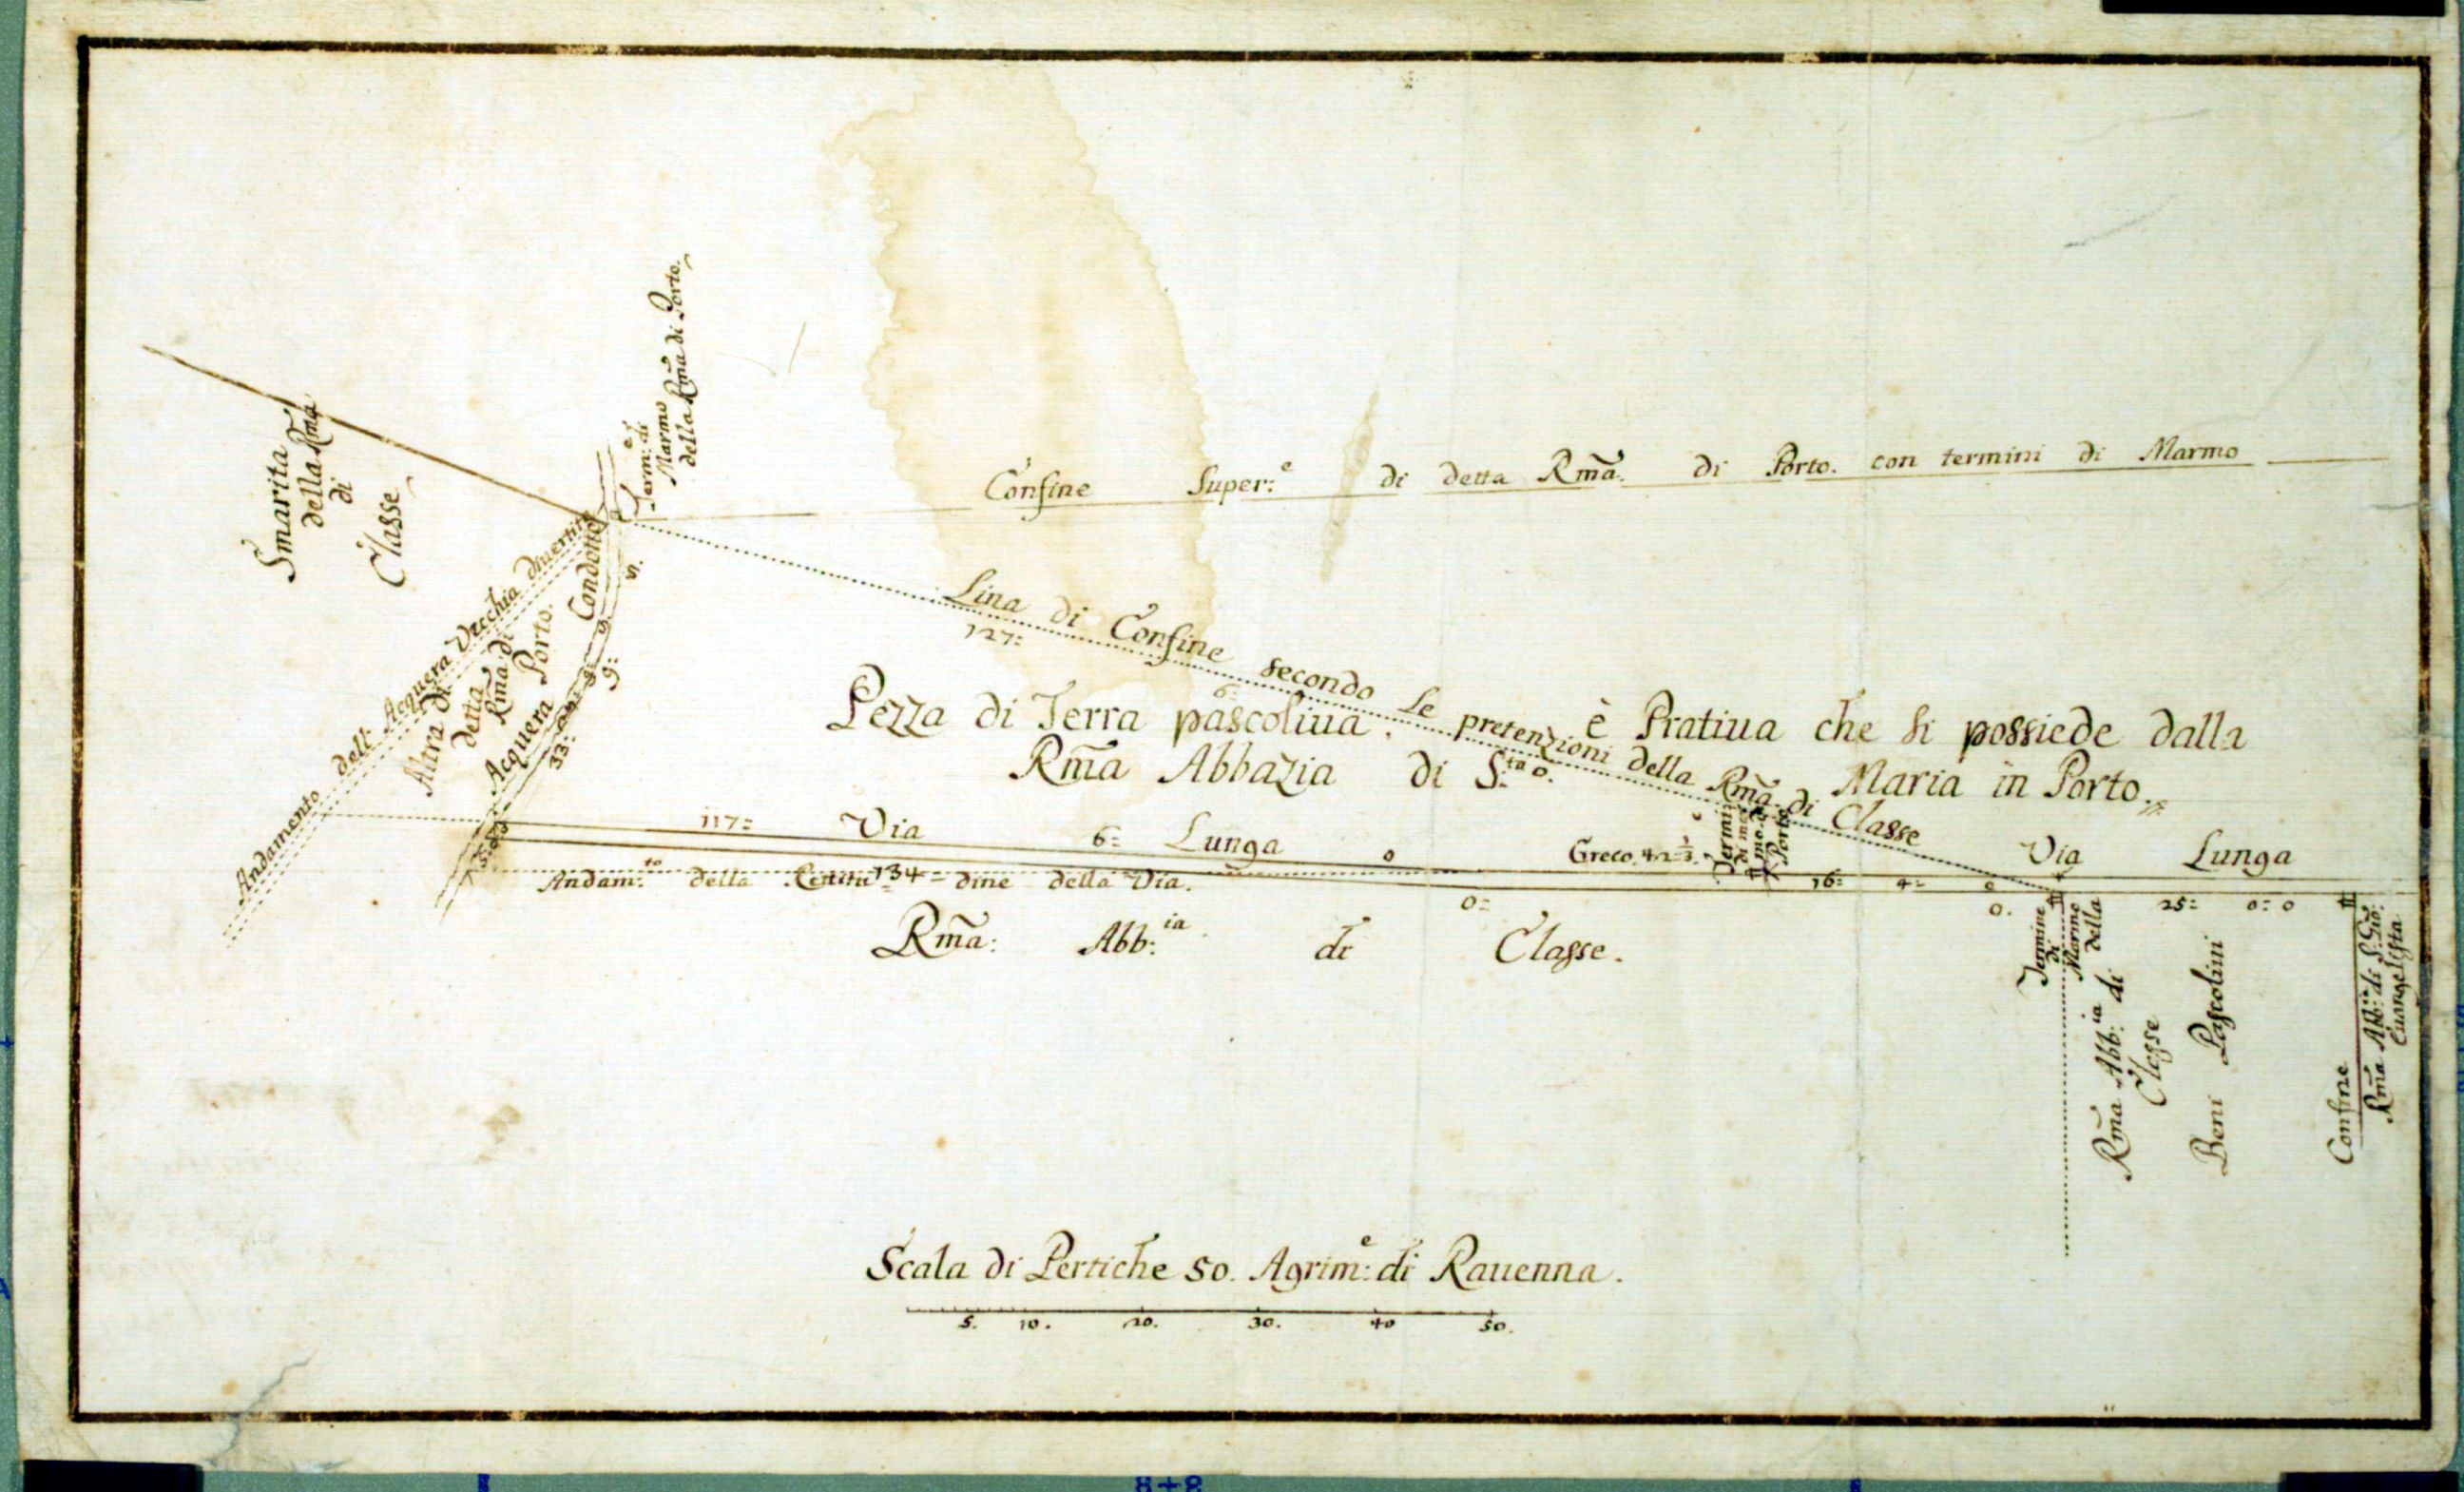 Smarita
della Rm̃a
di
Classe
Term:e di
Marmo
della Rm̃a di Porto.
Confine Super:e di detta Rm̃a. di Porto. con termini di Marmo
Andamento dell' Acquera Vecchia divertita
Altra di
detta
Rm̃a di
Porto.
Acquera Condotto
5.
9:
33:
Lina di Confine secondo Le pretenzioni della Rm̃a di Classe
127:
6:
Pezza di Terra pascoliua. è Pratiua che si possiede dalla
Rm̃a Abbazia di S:ta Maria in Porto.
117= Via 6= Lunga 0 Greco. Via Lunga
Termine
Porto
Andam:to della 134= dine della Via.
0= 16: 4= 0. 25: 0:0
Rm̃a: Abb:ia di Classe.
Termine
di
Marmo
della
Rm̃a Abb:ia di
Classe
Beni Pasolini
Confine
Rm̃a Abb:ia di S. Gio:
Euangelista
Scala di Pertiche 50. Agrim:e di Rauenna.
5. 10. 20. 30. 40 50.
8+8